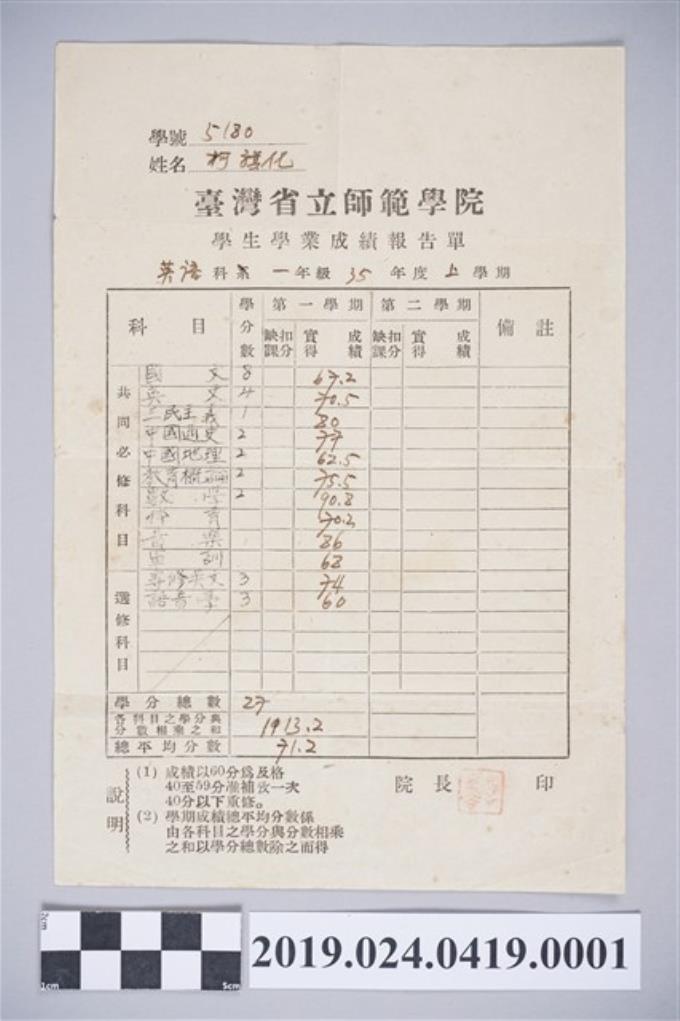 學號 5180
姓名 柯旗化
臺灣省立師範學院
學生學業成績報告單
英語科系 一年級 35 年度 上 學期
科目 學分數 第一學期 第二學期 備註
缺課 扣分 實得 成績 缺課 扣分 實得 成績
共同必修科目
國文 8 67.2
英文 4 70.5
三民主義 1 80
中國通史 2 77
中國地理 2 62.5
教育概論 2 75.5
數學 2 90.8
體育 70.2
音樂 86
軍訓 68
選修科目
專修英文 3 74
語音學 3 60
學分總數 27
各科目之學分與分數相乘之和 1913.2
總平均分數 71.2
說明
(1) 成績以60分爲及格
40至59分准補攷一次
40分以下重修。
(2) 學期成績總平均分數係
由各科目之學分與分數相乘
之和以學分總數除之而得
院長 印
2cm
1cm 5cm
2019.024.0419.0001